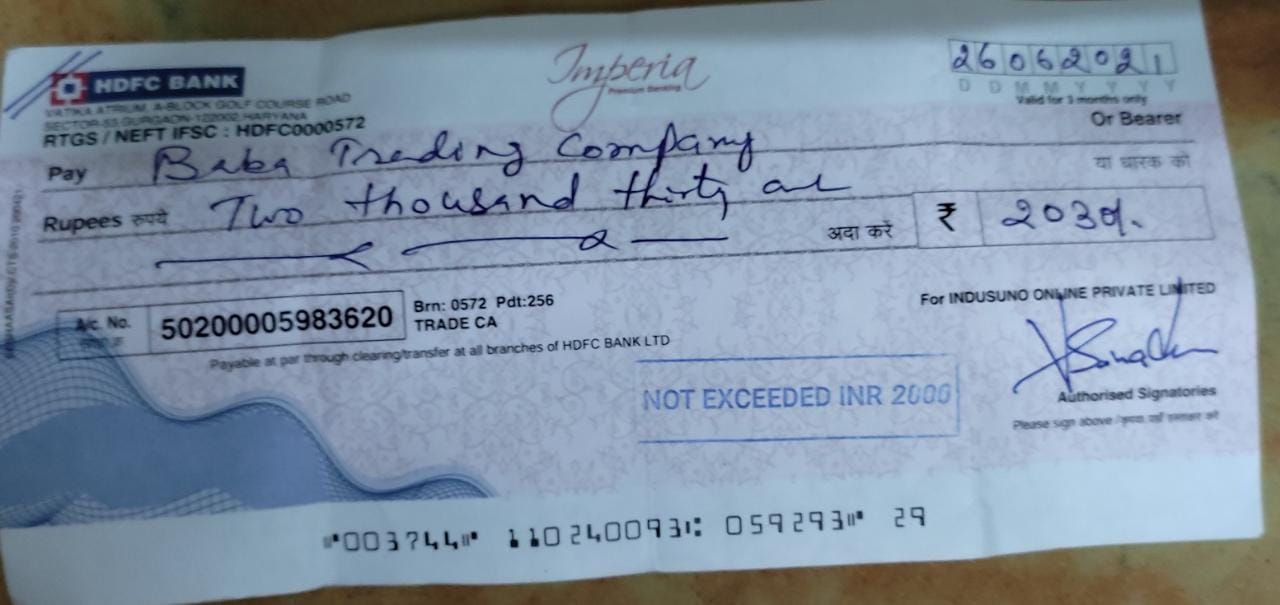 HDFC BANK
VATIKA ATRIUM, A-BLOCK GOLF COURSE ROAD
SECTOR-53 GURGAON-122002, HARYANA
RTGS / NEFT IFSC : HDFC0000572
Imperia
Premium Banking
26062021
D D M M Y Y Y Y
Valid for 3 months only
Pay Baba Trading Company Or Bearer
या धारक को
Rupees रुपये Two thousand thirty
अदा करें ₹ 2030/-
A/c. No. 50200005983620
Brn: 0572 Pdt:256
TRADE CA
Payable at par through clearing/transfer at all branches of HDFC BANK LTD
For INDUSUNO ONLINE PRIVATE LIMITED
NOT EXCEEDED INR 2000
Authorised Signatories
Please sign above /
⑈003744⑈ 110240093⑆ 059293⑈ 29